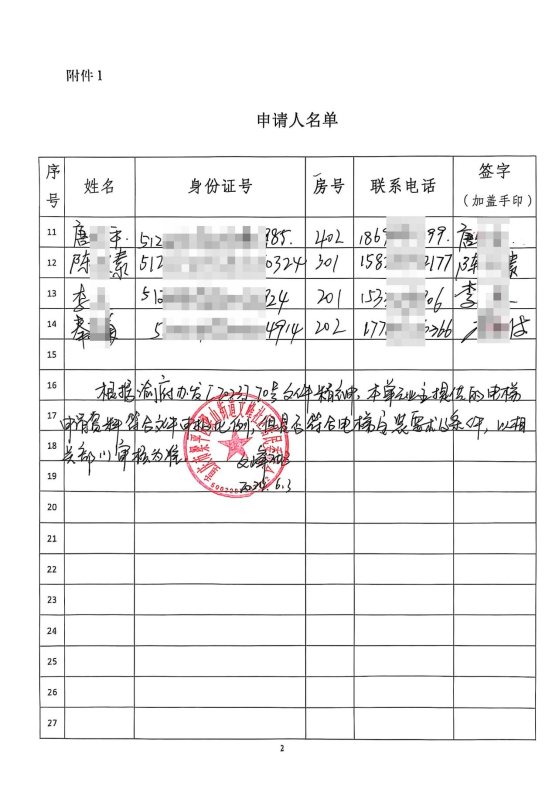 附件1
申请人名单
序号 姓名 身份证号 房号 联系电话 签字（加盖手印）
11 唐 平 512 985. 402 1869 99. 唐
12 陈 素 512 0324 301 158 2177 陈 素
13 李 512 324 201 153 06 李
14 秦 5 4914 202 177 5366
15
16 根据渝府办发〔2022〕70号文件精神，本单元业主提供的电梯
17 申请资料符合文件申报比例，但是否符合电梯安装要求及条件，以相
18 关部门审核为准。
19 2024.6.3
20
21
22
23
24
25
26
27
2